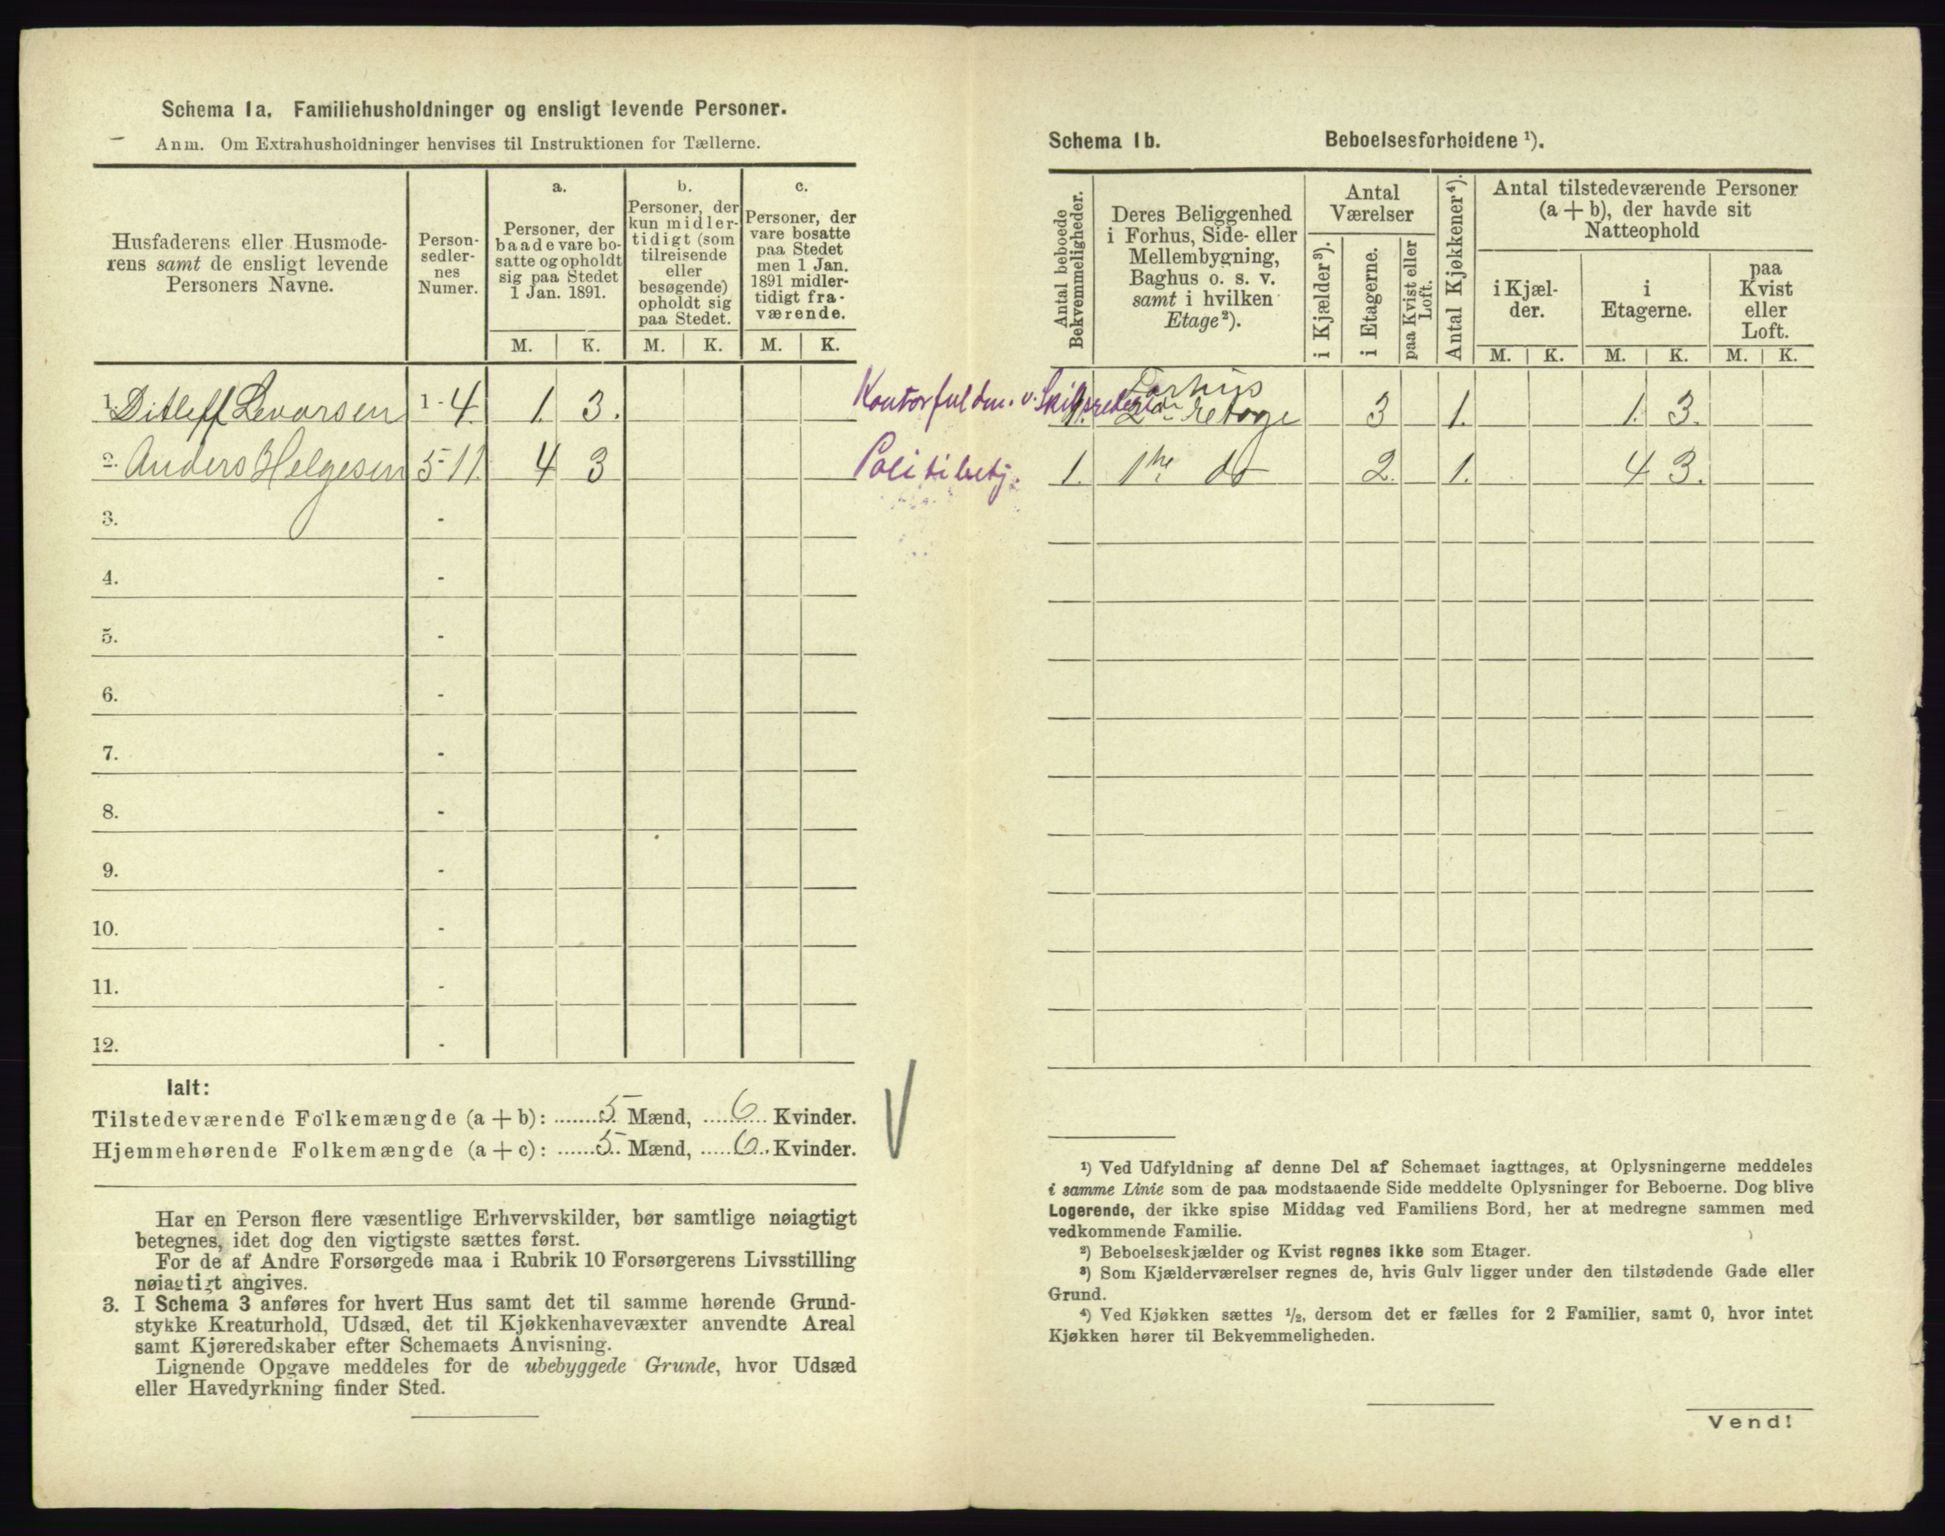 Schema 1a. Familiehusholdninger og ensligt levende Personer.
Anm. Om Extrahusholdninger henvises til Instruktionen for Tællerne.
Husfaderens eller Husmoderens samt de ensligt levende Personers Navne.
Personsedlernes Numer.
a. Personer, der baade vare bosatte og opholdt sig paa Stedet 1 Jan. 1891.
b. Personer, der kun midlertidigt (som tilreisende eller besøgende) opholdt sig paa Stedet.
c. Personer, der vare bosatte paa Stedet men 1 Jan. 1891 midlertidigt fraværende.
M. K. M. K. M. K.
1. Ditleff Levorsen 1-4. 1. 3. Kontorfuldm. v.
2. Anders Helgesen 5-11. 4 3 Politibetj.
3. -
4. -
5. -
6. -
7. -
8. -
9. -
10. -
11. -
12. -
Ialt:
Tilstedeværende Folkemængde (a + b): 5. Mænd, 6 Kvinder.
Hjemmehørende Folkemængde (a + c): 5. Mænd, 6. Kvinder.
Har en Person flere væsentlige Erhvervskilder, bør samtlige nøiagtigt
betegnes, idet dog den vigtigste sættes først.
For de af Andre Forsørgede maa i Rubrik 10 Forsørgerens Livsstilling
nøiagtigt angives.
3. I Schema 3 anføres for hvert Hus samt det til samme hørende Grund-
stykke Kreaturhold, Udsæd, det til Kjøkkenhavevæxter anvendte Areal
samt Kjøreredskaber efter Schemaets Anvisning.
Lignende Opgave meddeles for de ubebyggede Grunde, hvor Udsæd
eller Havedyrkning finder Sted.
Schema 1b. Beboelsesforholdene ¹).
Antal beboede Bekvemmeligheder.
Deres Beliggenhed i Forhus, Side- eller Mellembygning, Baghus o. s. v. samt i hvilken Etage²).
Antal Værelser
i Kjælder³).
i Etagerne.
paa Kvist eller Loft.
Antal Kjøkkener⁴).
Antal tilstedeværende Personer (a + b), der havde sit Natteophold
i Kjælder.
i Etagerne.
paa Kvist eller Loft.
M. K. M. K. M. K.
Forhus
1. 2den etage 3 1. 1. 3.
1. 1ste do 2. 1. 4 3.
¹) Ved Udfyldning af denne Del af Schemaet iagttages, at Oplysningerne meddeles
i samme Linie som de paa modstaaende Side meddelte Oplysninger for Beboerne. Dog blive
Logerende, der ikke spise Middag ved Familiens Bord, her at medregne sammen med
vedkommende Familie.
²) Beboelseskjælder og Kvist regnes ikke som Etager.
³) Som Kjælderværelser regnes de, hvis Gulv ligger under den tilstødende Gade eller
Grund.
⁴) Ved Kjøkken sættes ½, dersom det er fælles for 2 Familier, samt 0, hvor intet
Kjøkken hører til Bekvemmeligheden.
Vend!